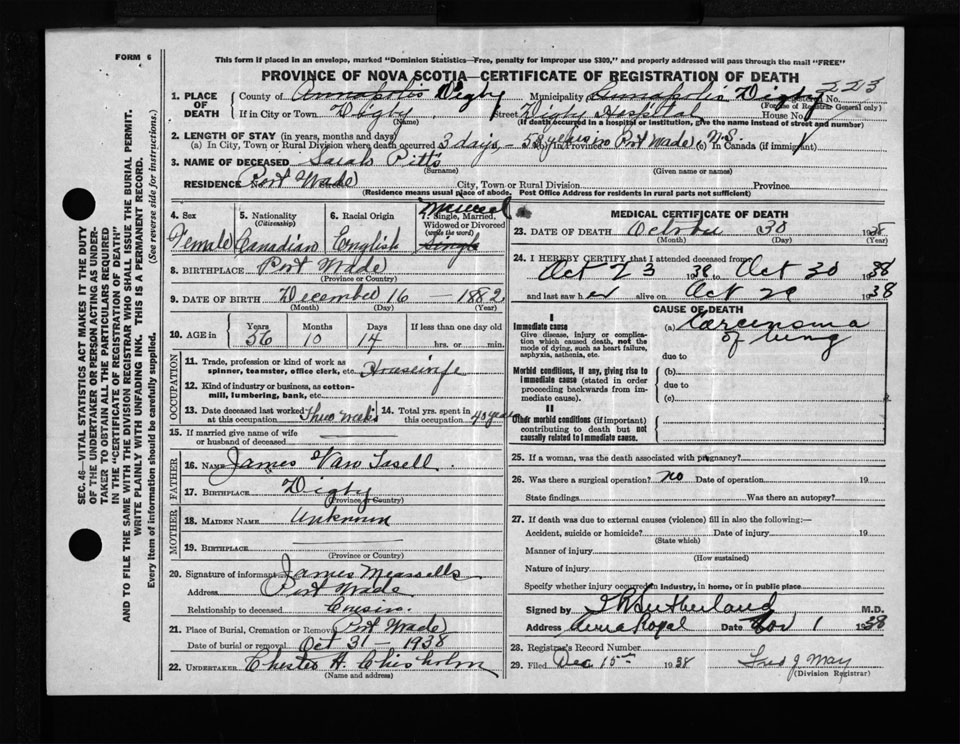 FORM 6
This form if placed in an envelope, marked "Dominion Statistics—Free, penalty for improper use $300," and properly addressed will pass through the mail "FREE"
PROVINCE OF NOVA SCOTIA—CERTIFICATE OF REGISTRATION OF DEATH
223
1. PLACE OF DEATH
County of Annapolis Digby Municipality Annapolis Digby
(For use of Registrar General only)
If in City or Town Digby Street Digby Hospital House No.
(Name) (If death occurred in a hospital or institution, give the name instead of street and number)
2. LENGTH OF STAY (in years, months and days)
(a) In City, Town or Rural Division where death occurred 3 days (b) In Province Port Wade N.S. (c) In Canada (if immigrant)
3. NAME OF DECEASED Sarah Pitts
(Surname) (Given name or names)
RESIDENCE Port Wade City, Town or Rural Division Province
(Residence means usual place of abode. Post Office Address for residents in rural parts not sufficient)
4. Sex
Female
5. Nationality
(Citizenship)
Canadian
6. Racial Origin
English
Single, Married, Widowed or Divorced
(write the word)
Single
8. BIRTHPLACE Port Wade
(Province or Country)
9. DATE OF BIRTH December 16 — 1882
(Month) (Day) (Year)
10. AGE in Years Months Days If less than one day old
56 10 14 hrs. or min.
OCCUPATION
11. Trade, profession or kind of work as spinner, teamster, office clerk, etc. Housewife
12. Kind of industry or business, as cotton-mill, lumbering, bank, etc.
13. Date deceased last worked at this occupation Three weeks
14. Total yrs. spent in this occupation 40 years
15. If married give name of wife or husband of deceased
FATHER
16. NAME James Van Tasell
17. BIRTHPLACE Digby
(Province or Country)
MOTHER
18. MAIDEN NAME Unknown
19. BIRTHPLACE
(Province or Country)
20. Signature of informant James
Address Port Wade
Relationship to deceased Cousin
21. Place of Burial, Cremation or Removal Port Wade
Date of burial or removal Oct 31 1938
22. UNDERTAKER Chester H. Chisholm
(Name and address)
MEDICAL CERTIFICATE OF DEATH
23. DATE OF DEATH October 30 1938
(Month) (Day) (Year)
24. I HEREBY CERTIFY that I attended deceased from
Oct 23 1938 to Oct 30 1938
and last saw her alive on Oct 29 1938
CAUSE OF DEATH
I
Immediate cause
Give disease, injury or complication which caused death, not the mode of dying, such as heart failure, asphyxia, asthenia, etc.
(a) Carcinoma of lung
due to
Morbid conditions, if any, giving rise to immediate cause (stated in order proceeding backwards from immediate cause).
(b)
due to
(c)
II
Other morbid conditions (if important) contributing to death but not causally related to immediate cause.
25. If a woman, was the death associated with pregnancy?
26. Was there a surgical operation? No Date of operation 19
State findings Was there an autopsy?
27. If death was due to external causes (violence) fill in also the following:—
Accident, suicide or homicide? Date of injury 19
(State which)
Manner of injury
(How sustained)
Nature of injury
Specify whether injury occurred in industry, in home, or in public place
Signed by Sutherland M.D.
Address Anna Royal Date Nov 1 1938
28. Registrar's Record Number
29. Filed Dec 15th 1938 Fred J. May
(Division Registrar)
SEC. 46—VITAL STATISTICS ACT MAKES IT THE DUTY
OF THE UNDERTAKER OR PERSON ACTING AS UNDER-
TAKER TO OBTAIN ALL THE PARTICULARS REQUIRED
IN THE "CERTIFICATE OF REGISTRATION OF DEATH"
AND TO FILE THE SAME WITH THE DIVISION REGISTRAR WHO SHALL ISSUE THE BURIAL PERMIT.
WRITE PLAINLY WITH UNFADING INK. THIS IS A PERMANENT RECORD.
Every item of information should be carefully supplied. (See reverse side for instructions.)